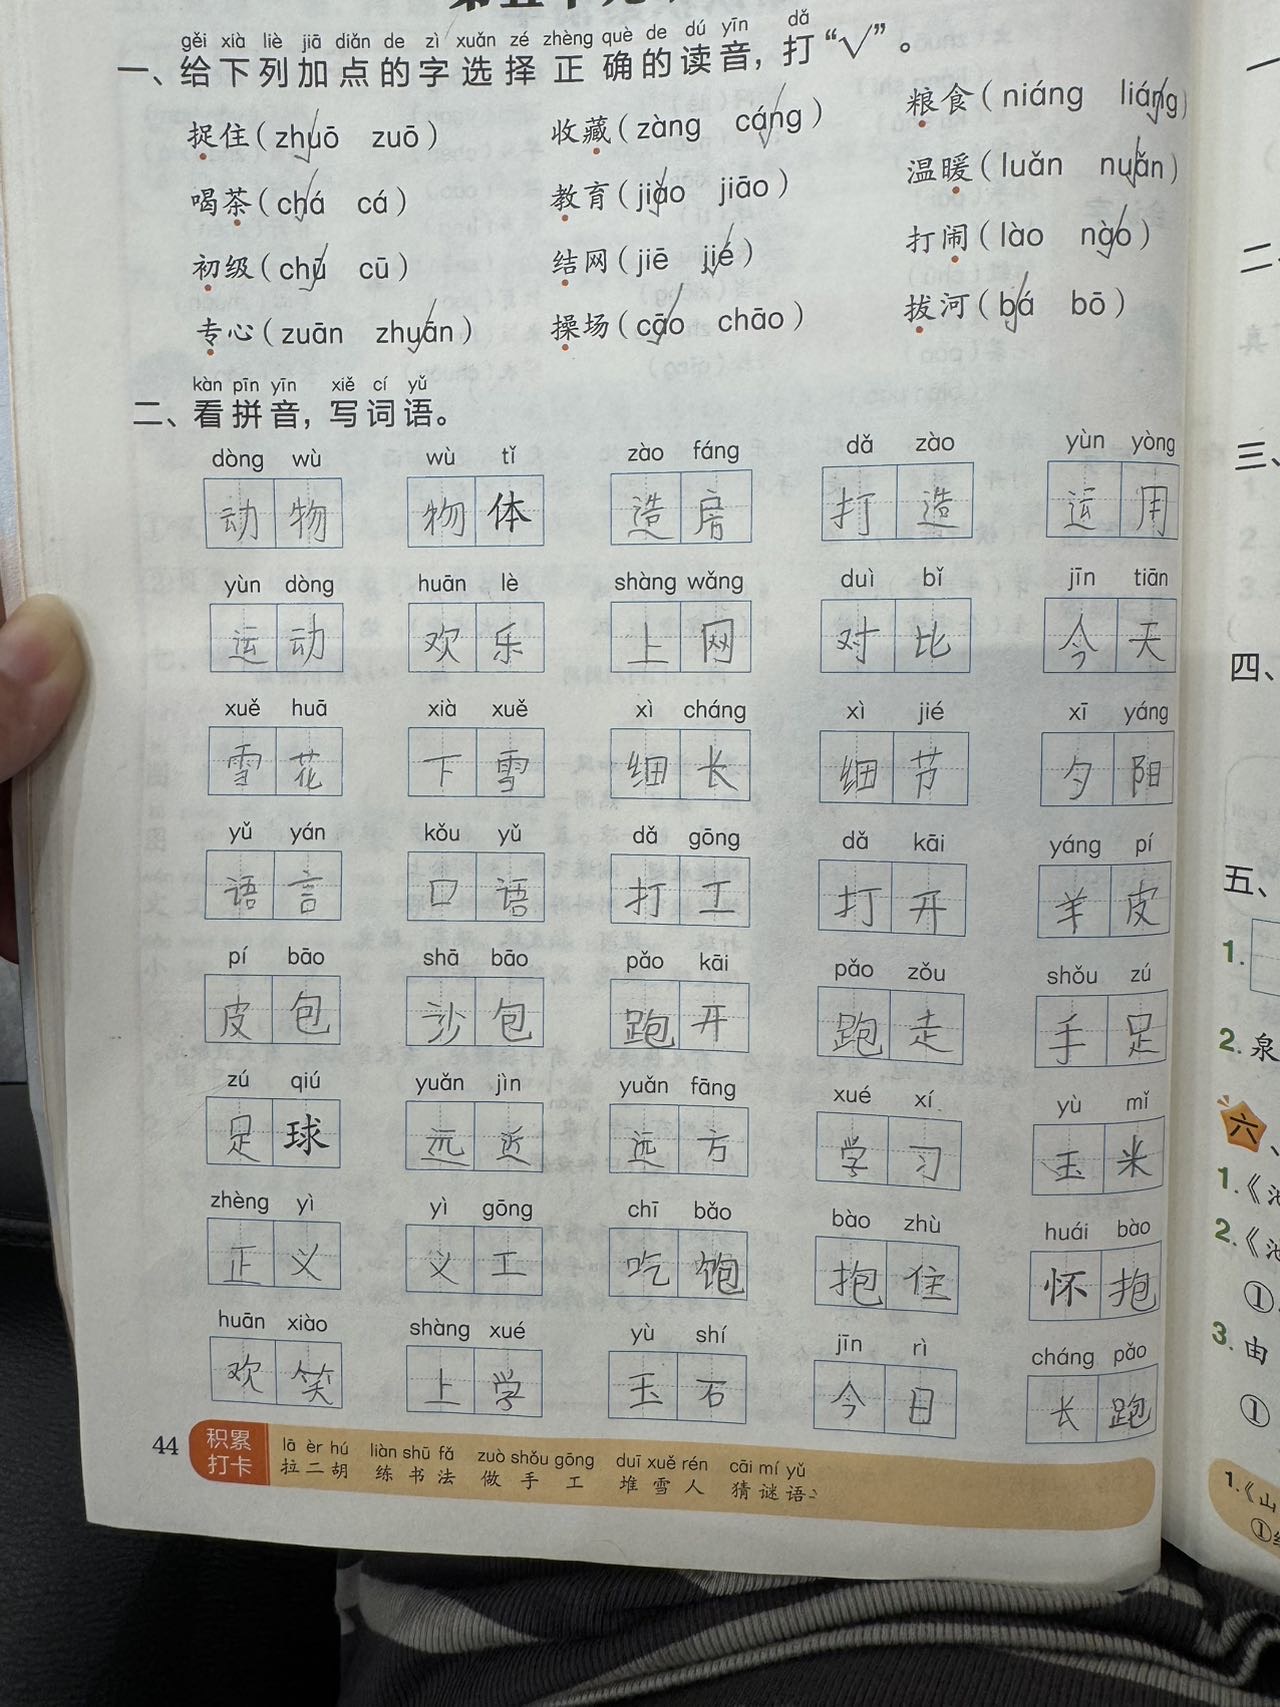 gěi xià liè jiā diǎn de zì xuǎn zé zhèng què de dú yīn dǎ
一、给下列加点的字选择正确的读音，打“√”。
捉住（zhuō zuō） 收藏（zàng cáng） 粮食（niáng liáng）
喝茶（chá cá） 教育（jiào jiāo） 温暖（luǎn nuǎn）
初级（chū cū） 结网（jiē jié） 打闹（lào nào）
专心（zuān zhuān） 操场（cāo chāo） 拔河（bá bō）
kàn pīn yīn xiě cí yǔ
二、看拼音，写词语。
dòng wù wù tǐ zào fáng dǎ zào yùn yòng
动物 物体 造房 打造 运用
yùn dòng huān lè shàng wǎng duì bǐ jīn tiān
运动 欢乐 上网 对比 今天
xuě huā xià xuě xì cháng xì jié xī yáng
雪花 下雪 细长 细节 夕阳
yǔ yán kǒu yǔ dǎ gōng dǎ kāi yáng pí
语言 口语 打工 打开 羊皮
pí bāo shā bāo pǎo kāi pǎo zǒu shǒu zú
皮包 沙包 跑开 跑走 手足
zú qiú yuǎn jìn yuǎn fāng xué xí yù mǐ
足球 远近 远方 学习 玉米
zhèng yì yì gōng chī bǎo bào zhù huái bào
正义 义工 吃饱 抱住 怀抱
huān xiào shàng xué yù shí jīn rì cháng pǎo
欢笑 上学 玉石 今日 长跑
44
积累
打卡
lā èr hú liàn shū fǎ zuò shǒu gōng duī xuě rén cāi mí yǔ
拉二胡 练书法 做手工 堆雪人 猜谜语
一
二
真
三、
1.
2.
3.
四、
五、
1.
2. 泉
六、
1.《池
2.《池
①
3. 由
①
1.《山
①